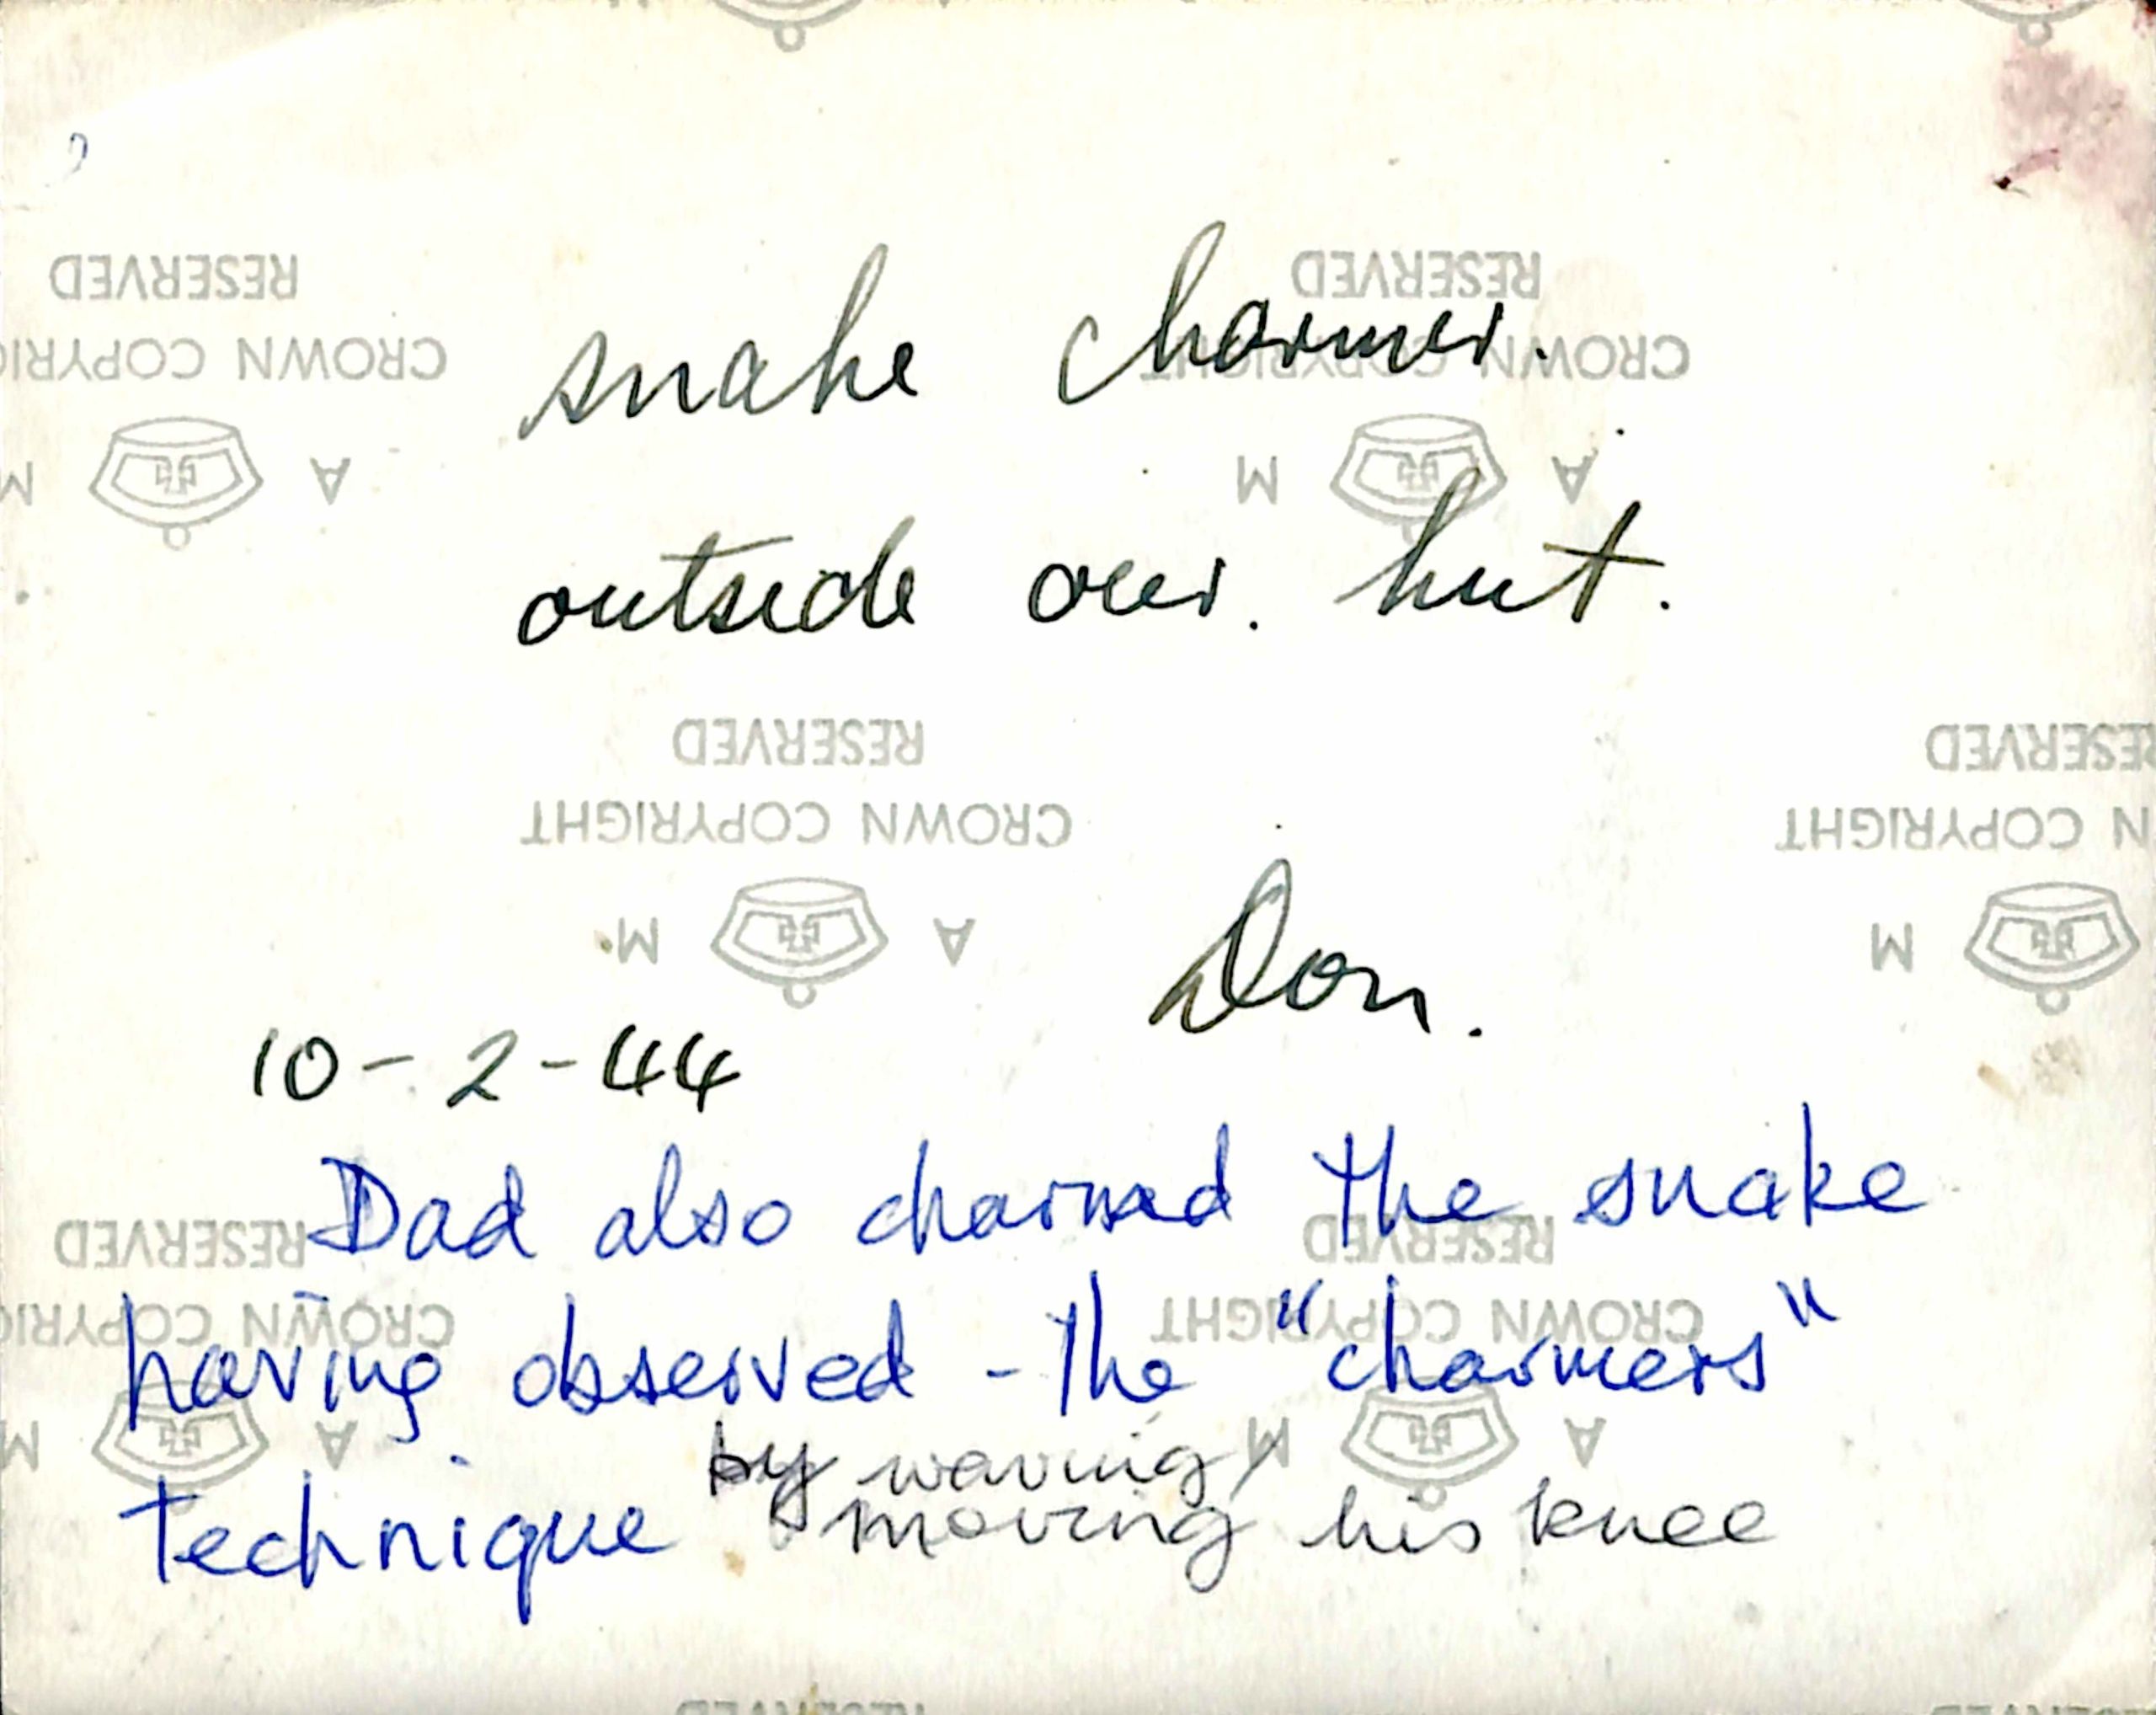 RESERVED
RESERVED
CROWN COPYRIG
CROWN COPYRIGHT
snake charmer.
A M
A M
outside our. hut.
RESERVED
RESERVED
CROWN COPYRIGHT
N COPYRIGHT
A M
M
Don.
10-2-44
Dad also charmed the snake
RESERVED
RESERVED
CROWN COPYRIG
CROWN COPYRIGHT
having observed - the "charmers"
A M
A M
by waving/
technique moving his knee
RESERVED
RESERVED